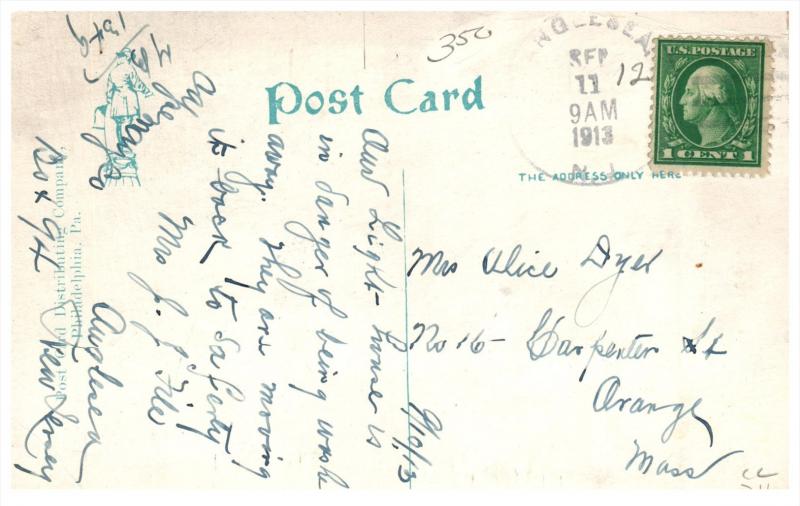 350
ANGLESEA
SEP
11
9AM
1913
N.J.
12
U.S. POSTAGE
1 CENT 1
Post Card
THE ADDRESS ONLY HERE
9/10/13
Our Light-house is
in danger of being wash
away. They are moving
it back to Saferty
Mrs J. J.
Box 94
Anglesea
New Jersey
Mrs Alice Dyer
No 16- Carpenter St
Orange
Mass
Post Card Distributing Company,
Philadelphia, Pa.